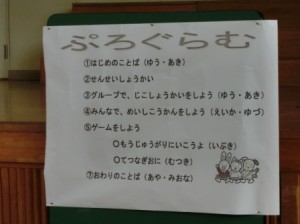 ぷろぐらむ
①はじめのことば（ゆう・あき）
②せんせいしょうかい
③グループで、じこしょうかいをしよう（ゆう・あき）
④みんなで、めいしこうかんをしよう（えいか・ゆづ）
⑤ゲームをしよう
〇もうじゅうがりにいこうよ（いぶき）
〇てつなぎおに（むつき）
⑦おわりのことば（あや・みおな）